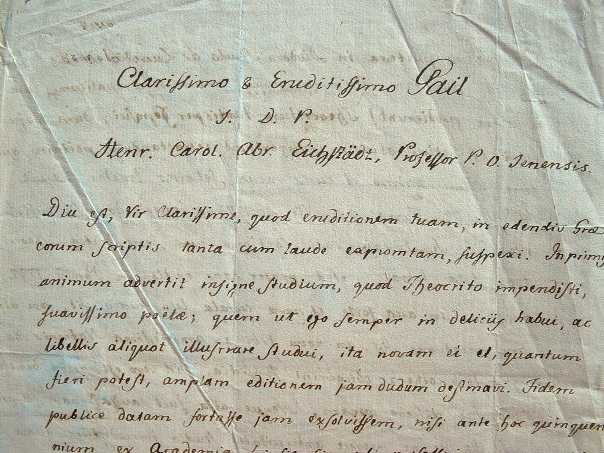 Clarissimo & Eruditissimo Gail
S. D. P.
Henr. Carol. Abr. Eichstädt, Professor P. O. Jenensis.
Diu est, Vir Clarissime, quod eruditionem tuam, in edendis Græ-
corum scriptis tanta cum laude expromtam, suspexi. Inprimis
animum advertit insigne studium, quod Theocrito impendisti,
suavissimo poëtæ; quem ut ego semper in deliciis habui, ac
libellis aliquot illustrare studui, ita novam ei et, quantum
fieri potest, amplam editionem jam dudum destinavi. Fidem
publice datam fortasse jam exsolvissem, nisi ante hoc quinquen-
nium ex Academia